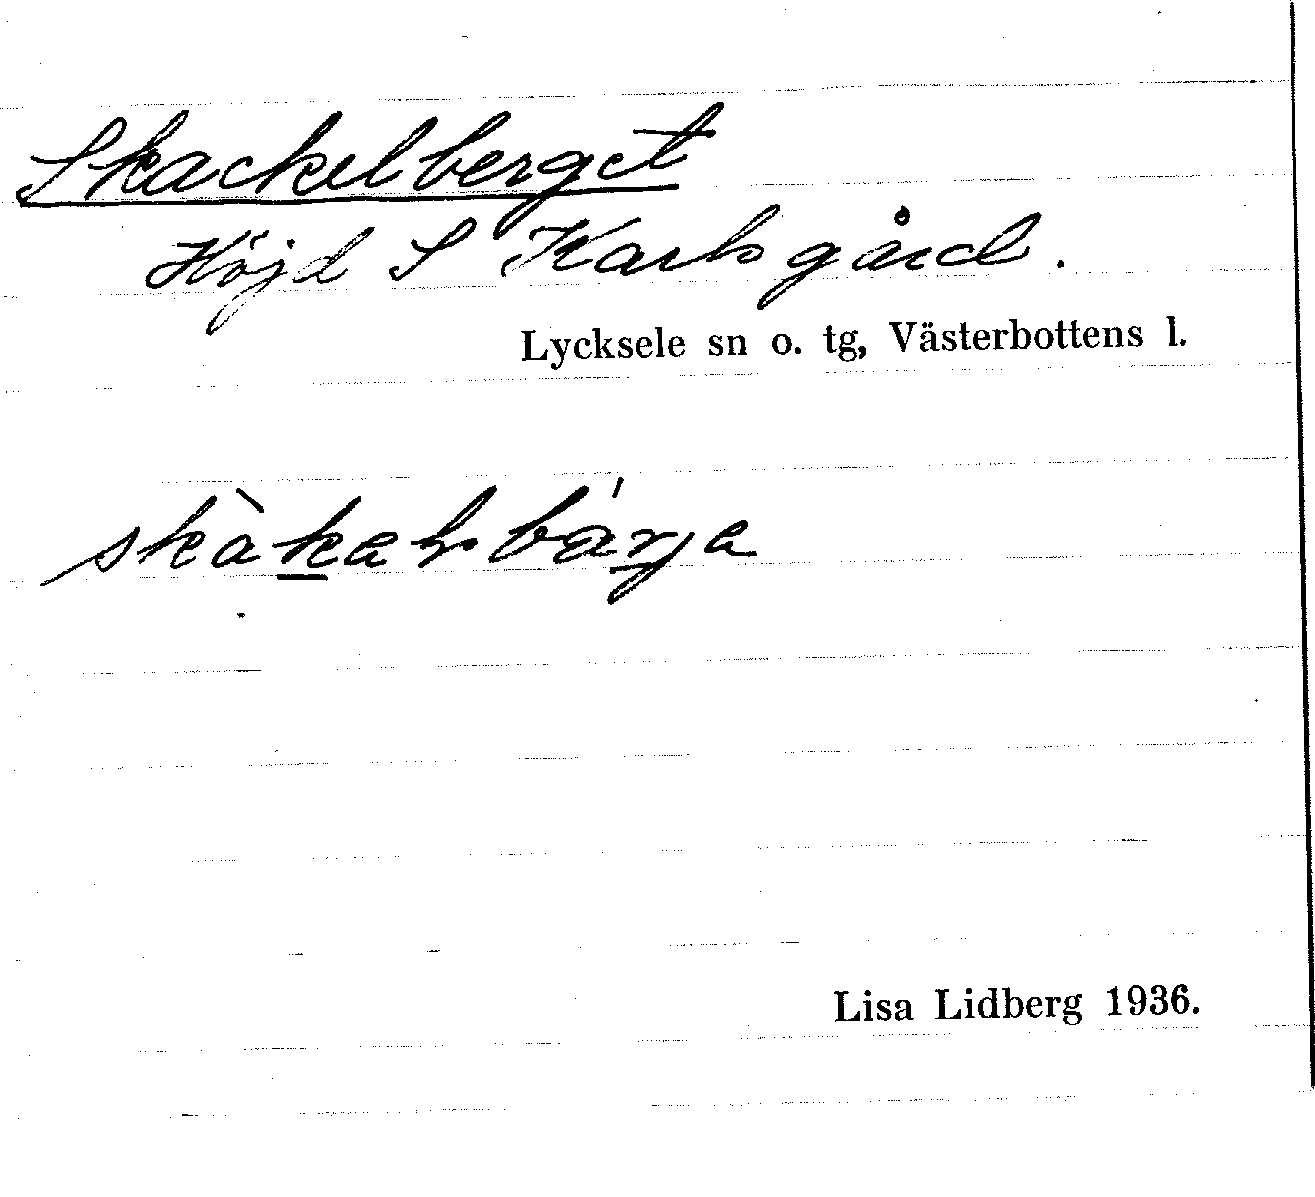 Skackelberget
Höjd S Karlsgård.
Lycksele sn o. tg, Västerbottens l.
Lisa Lidberg 1936.